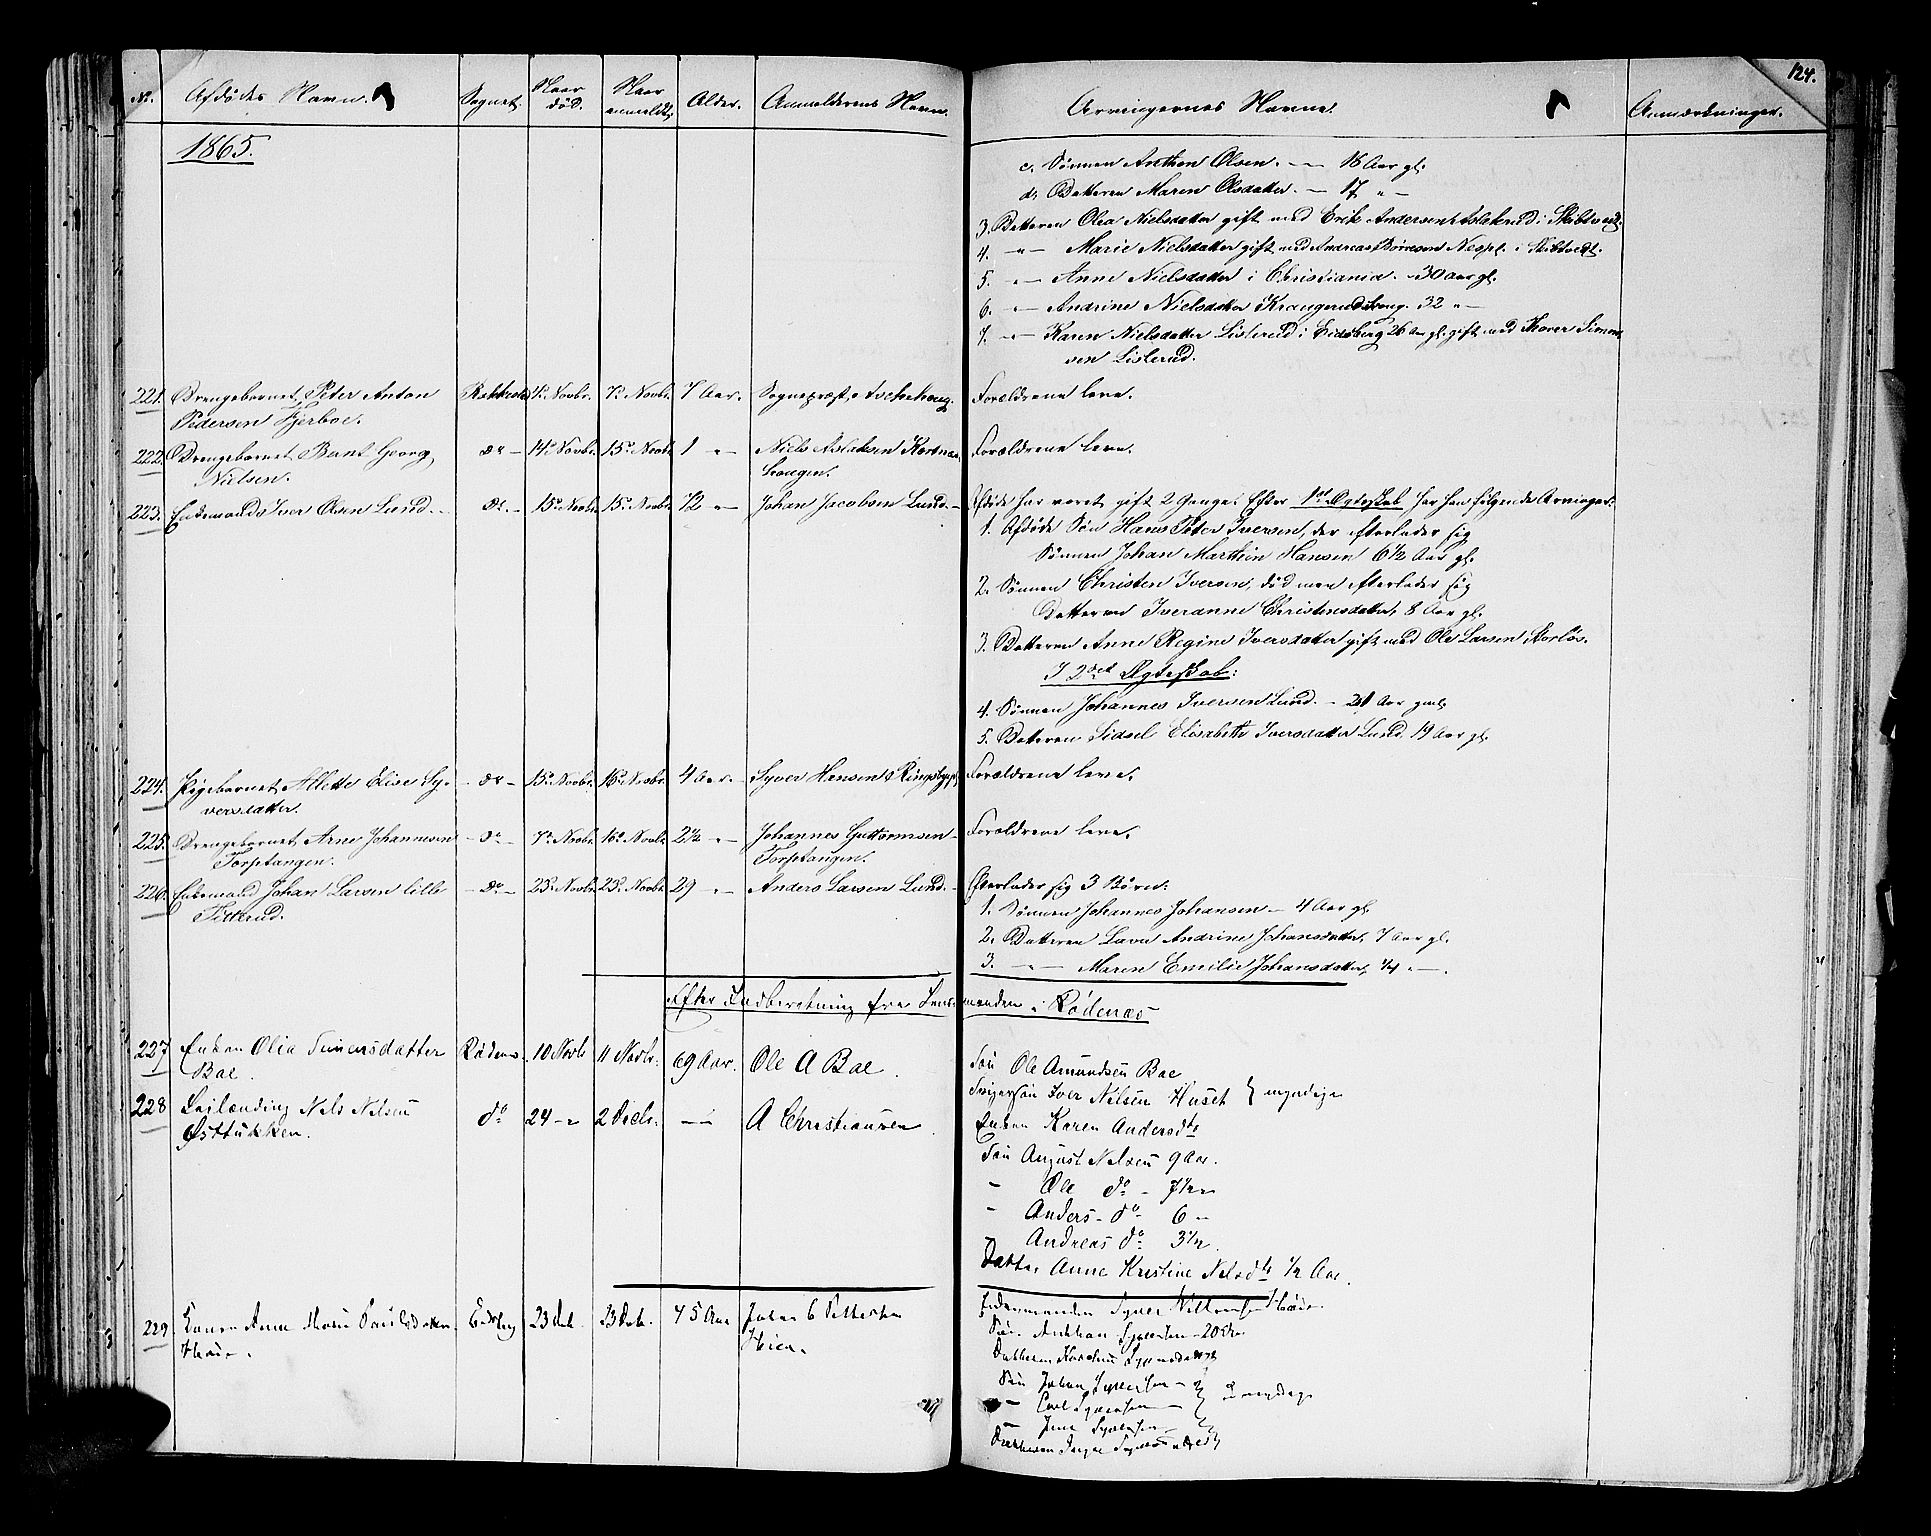 124.
No. Afdødes Navn. Sognet. Naar død. Naar anmeldt. Alder. Anmelderens Navn. Arvingernes Navne. Anmærkninger.
1865.
c. Sønnen Anthon Olsen. — 16 Aar gl.
d. Datteren Maren Olsdatter. — 17 " —
3. Datteren Olea Nielsdatter gift med Erik Andersen Aslakrud i Skibtvedt.
4. " — Marie Nielsdatter gift med Andreas Børresen Nespl. i Skibtvedt.
5. " — Anne Nielsdatter i Christiania. 30 Aar gl.
6. " — Andrine Nielsdatter Krangerud 32 " —
7. " — Karen Nielsdatter Listerud i Eidsberg 26 Aar gl. gift med Thorer Simen
sen Listerud.
221. Drengebarnet Peter Anton Rakkestad 4de Novbr. 7de Novbr. 7 Aar. Sognepræst Aschehoug. Forældrene leve.
Pedersen Fjerboe.
222. Drengebarnet Bernt Georg do — 14de Novbr. 15de Novbr. 1 " — Niels Aslaksen Forældrene leve.
Nielsen. haugen.
223. Enkemand Iver Olsen Lund. do. — 15de Novbr. 15de Novbr. 72 " — Johan Jacobsen Lund. — Afdøde har været gift 2 Gange. Efter 1ste Ægteskab har han følgende Arvinger:
1. Afdøde Søn Hans Peter Iversen, der efterlader sig
Sønnen Johan Marthin Hansen 6 1/2 Aar gl.
2. Sønnen Christen Iversen, død men efterlader sig
Datteren Iveranne Christensdatter, 8 Aar gl.
3. Datteren Anne Regine Iversdatter gift med Ole Larsen Korløs.
I 2det Ægteskab:
4. Sønnen Johannes Iversen Lund. — 21 Aar gml.
5. Datteren Sidsel Elisabeth Iversdatter Lund. 19 Aar gl.
224. Pigebarnet Allette Elise Sy- — do — 15de Novbr. 16de Novbr. 4 Aar. — Syver Hansen Ringsbypl. Forældrene leve.
versdatter.
225. Drengebarnet Arne Johannesen — do — 7de Novbr. 16de Novbr. 2 1/2 " — Johannes Guttormsen Forældrene leve.
Torptangen. Torptangen.
226. Enkemand Johan Larsen lille — do — 23de Novbr. 23de Novbr. 29 " — Anders Larsen Lund. — Efterlader sig 3 Børn:
Titterud. 1. Sønnen Johannes Johansen — 4 Aar gl.
2. Datteren Lava Andrine Johansdatter, 7 Aar gl.
3. " — Maren Emilie Johansdatter, 1/4 " —.
Efter Indberetning fra Lensmanden i Rødenæs
227 Enken Olia Simensdatter Rødenæs. 10 Novb. 11 Novbr. 69 Aar. Ole A Boe. Søn Ole Amundsen Boe
Boe. Svigersøn Iver Nelsen Huset } myndige
228 Leilænding Nels Nelsen do 24 — " 2 Decbr. — " — A Christiansen Enken Karen Andersdtr
Østtukken. Søn August Nelsen 9 Aar.
" Ole do — 7 1/2 "
" Anders — do 6 "
Andreas do 3 1/2.
Datter Anne Kristine Nelsdtr 1/2 Aar.
229 Konen Anne Marie Poulsdatter Eidsberg 23 Deb. 23 Deb. 45 Aar Johan C Pettersen Enkemanden Syver
Søn. Anthon Syversen — 20 Aar.
Datteren Syversdatter
Søn Johan Syversen —
" — Carl Syversen —
" — Syversen —
Datteren Inger Syversdatter